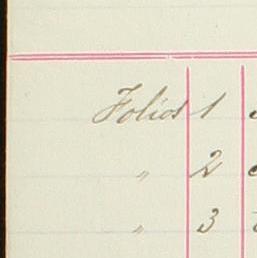 Folios 1
" 2
" 3